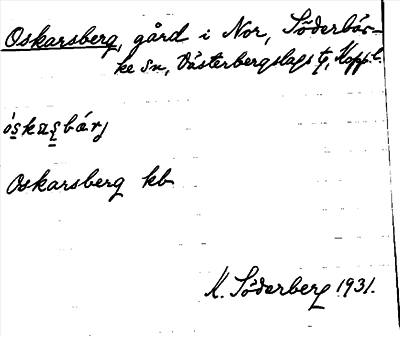 Oskarsberg, gård i Nor, Söderbär-
ke sn, Västerbergslags tg, Kopp. l.
óskaṣbærj
Oskarsberg kb
K. Söderberg 1931.